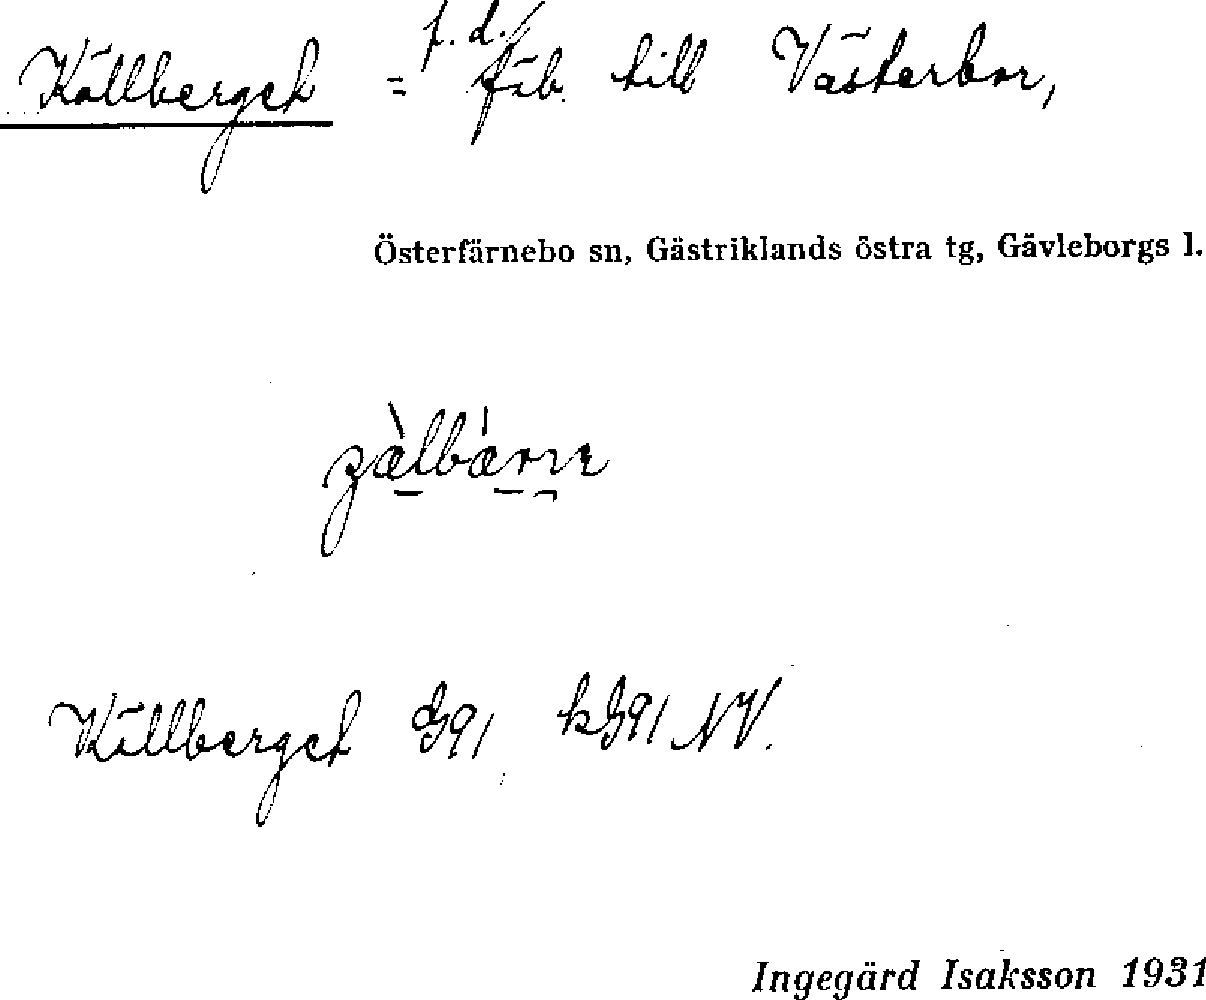 Källberget = f.d. fäb. till Västerbor,
Österfärnebo sn, Gästriklands östra tg, Gävleborgs l.
Källberget G91 kG91 NV.
Ingegärd Isaksson 1931